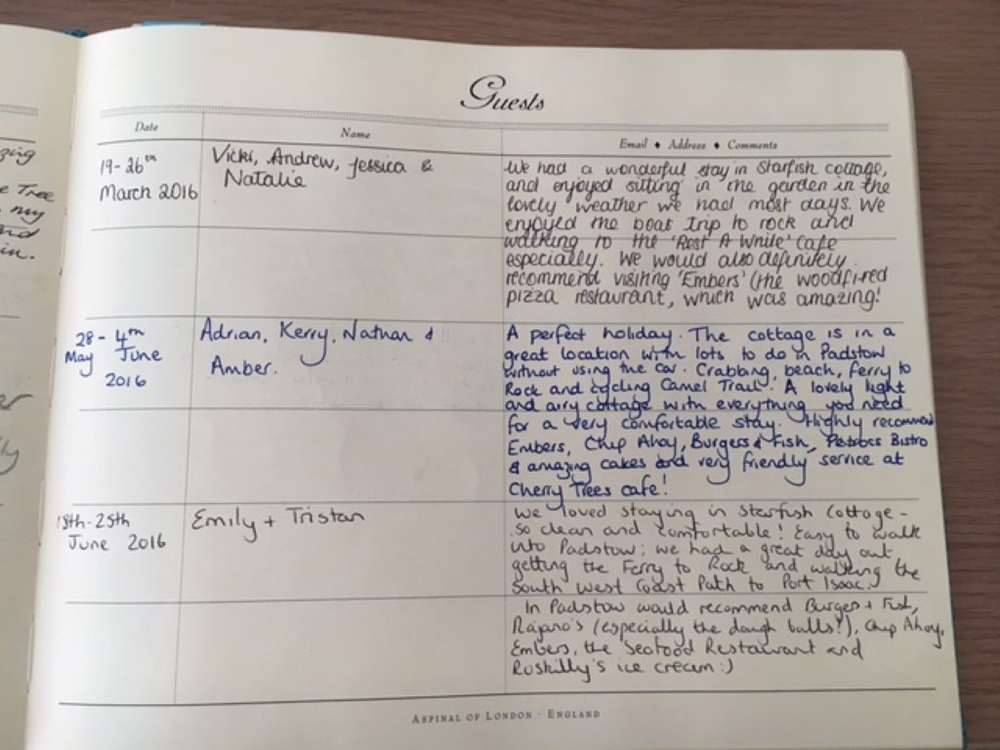 Guests
Date
Name
Email ♦ Address ♦ Comments
19-26th
March 2016
Vicki, Andrew, Jessica &
Natalie
We had a wonderful stay in Starfish cottage,
and enjoyed sitting in the garden in the
lovely weather we had most days. We
enjoyed the boat trip to rock and
walking to the 'Rest A While' Cafe
especially. We would also definitely
recommend visiting 'Embers' (the woodfired
pizza restaurant, which was amazing!
28 - 4th
May June
2016
Adrian, Kerry, Nathan &
Amber.
A perfect holiday. The cottage is in a
great location with lots to do in Padstow
without using the car. Crabbing, beach, ferry to
Rock and cycling Camel Trail. A lovely light
and airy cottage with everything you need
for a very comfortable stay. Highly recommend
Embers, Chip Ahoy, Burgers & Fish, Petrocs Bistro
& amazing cakes and very friendly service at
Cherry Trees cafe!
18th-25th
June 2016
Emily + Tristan
We loved staying in Starfish Cottage -
so clean and comfortable! Easy to walk
into Padstow; we had a great day out
getting the Ferry to Rock and walking the
South West Coast Path to Port Isaac.
In Padstow would recommend Burgers + Fish,
Rojano's (especially the dough balls!), Chip Ahoy,
Embers, the Seafood Restaurant and
Roskilly's ice cream :)
ASPINAL OF LONDON · ENGLAND